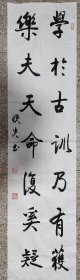 學於古訓乃有獲
樂夫天命復奚疑